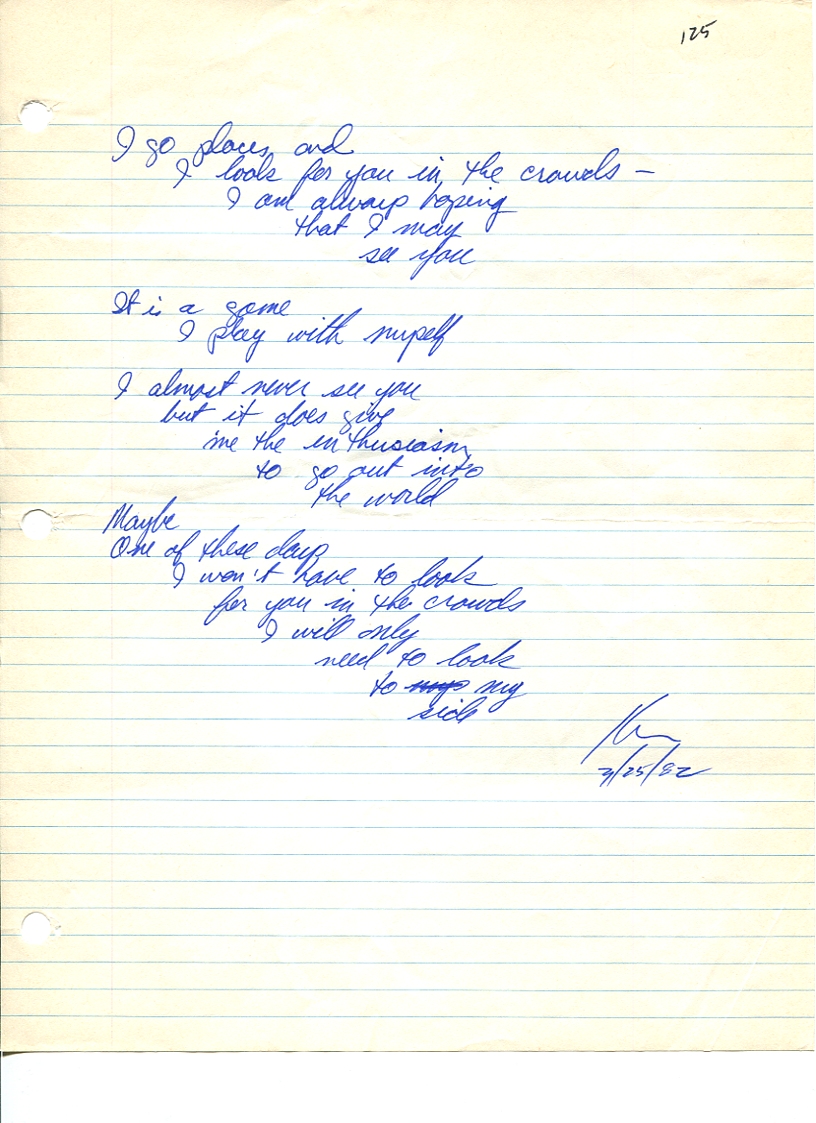 125
I go places and
I look for you in the crowds –
I am always hoping
that I may
see you
It is a game
I play with myself
I almost never see you
but it does give
me the enthusiasm
to go out into
the world
Maybe
One of these days
I won't have to look
for you in the crowds
I will only
need to look
to my
side
3/25/82